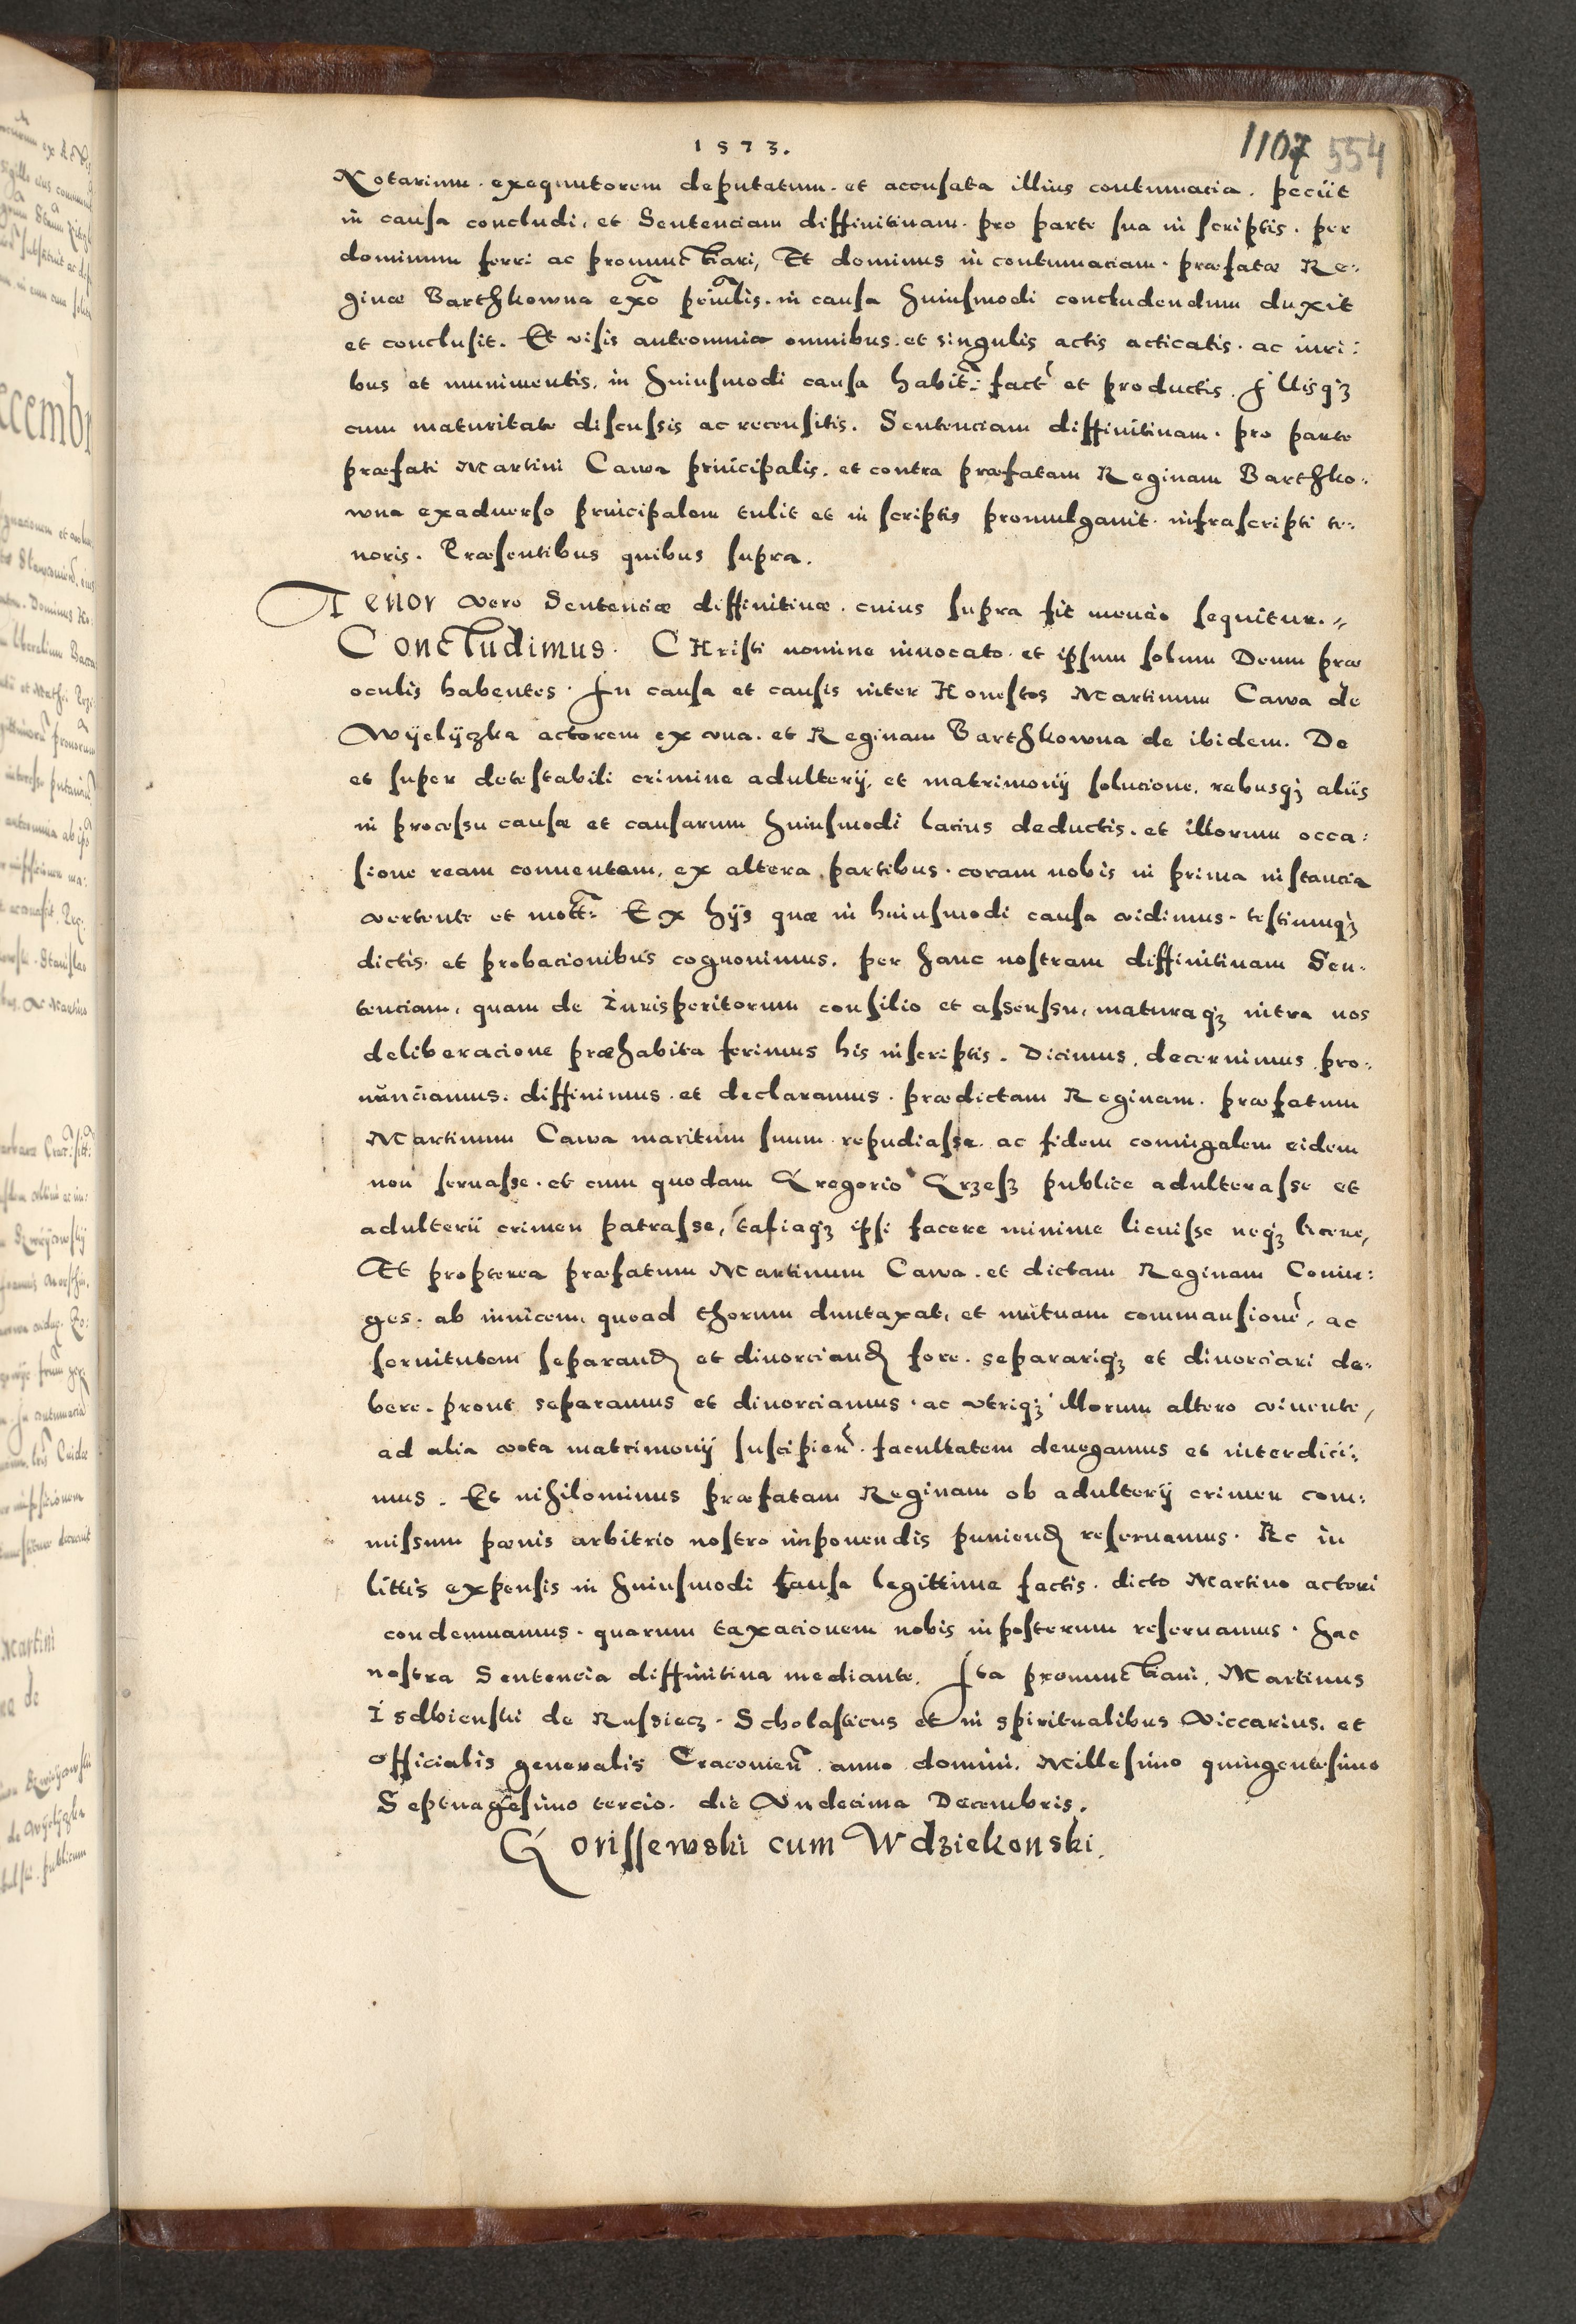 1573.
1107 554
Notarium. exequutorem deputatum. et accusata illius contumacia. peciit
in causa concludi, et Sentenciam diffinitiuam. pro parte sua in scriptis. per
dominum ferri ac pronunctiari, Et dominus in contumaciam. præfatæ Re:
ginæ Barthkowna exõ prin̄lis. in causa huiusmodi concludendum duxit
et conclusit. Et visis anteomnia omnibus. et singulis actis acticatis. ac iuri:
bus et munimentis. in huiusmodi causa habit: fact et productis. Illisqȝ
cum maturitate discussis ac recensitis. Sentenciam diffinitiuam. pro parte
præfati Martini Cawa principalis. et contra præfatam Reginam Barthko:
wna exaduerso principalem tulit et in scriptis promulgauit. infrascripti te:
noris. Præsentibus quibus supra.
Tenor vero Sentenciæ diffinitiuæ. cuius supra fit mencio sequitur.
Concludimus. CHristi nomine inuocato. et ipsum solum Deum præ
oculis habentes. In causa et causis inter Honestos Martinum Cawa de
Wyelyczka actorem ex vna. et Reginam Barthkowna de ibidem. De
et super detestabili crimine adulterÿ, et matrimonÿ solucione, rebusqȝ aliis
in processu causæ et causarum huiusmodi lacius deductis. et illorum occa:
sione ream conuentam, ex altera partibus. coram nobis in prima instancia
vertente et mott: Ex hÿs quæ in huiusmodi causa vidimus. testiumqȝ
dictis. et probacionibus cognouimus. per hanc nostram diffinitiuam Sen:
tenciam, quam de Iurisperitorum consilio et assenssu, maturaqȝ intra nos
deliberacione præhabita ferimus his inscriptis. Dicimus, decernimus pro:
nunciamus. diffinimus. et declaramus. prædictam Reginam. præfatum
Martinum Cawa maritum suum repudiasse. ac fidem coniugalem eidem
non seruasse. et cum quodam Gregorio Grzesz publice adulterasse et
adulterii crimen patrasse, taliaqȝ ipsi facere minime licuisse neqȝ licere,
Et propterea præfatum Martinum Cawa. et dictam Reginam Coniu:
ges. ab inuicem, quoad thorum duntaxat, et mutuam commansionē, ac
seruitutem separand et diuorciand fore. separariqȝ et diuorciari de:
bere. prout separamus et diuorciamus. ac vtriqȝ illorum altero viuente,
ad alia vota matrimonÿ suscipien. facultatem denegamus et interdici:
mus. Et nihilominus præfatam Reginam ob adulterÿ crimen com:
missum pænis arbitrio nostro imponendis puniend reseruamus. Ac in
littis expensis in huiusmodi causa legittime factis. dicto Martino actori
condemnamus. quarum taxacionem nobis inposterum reseruamus. hac
nostra Sentencia diffinitiua mediante. Ita pronunctiaui, Martinus
Isdbienski de Russiecz. Scholasticus et in spiritualibus Viccarius. et
officialis generalis Cracouien. anno domini. Millesimo quingentesimo
Septuagesimo tercio. die Vndecima Decembris.
Gorissewski cum Wdziekonski.